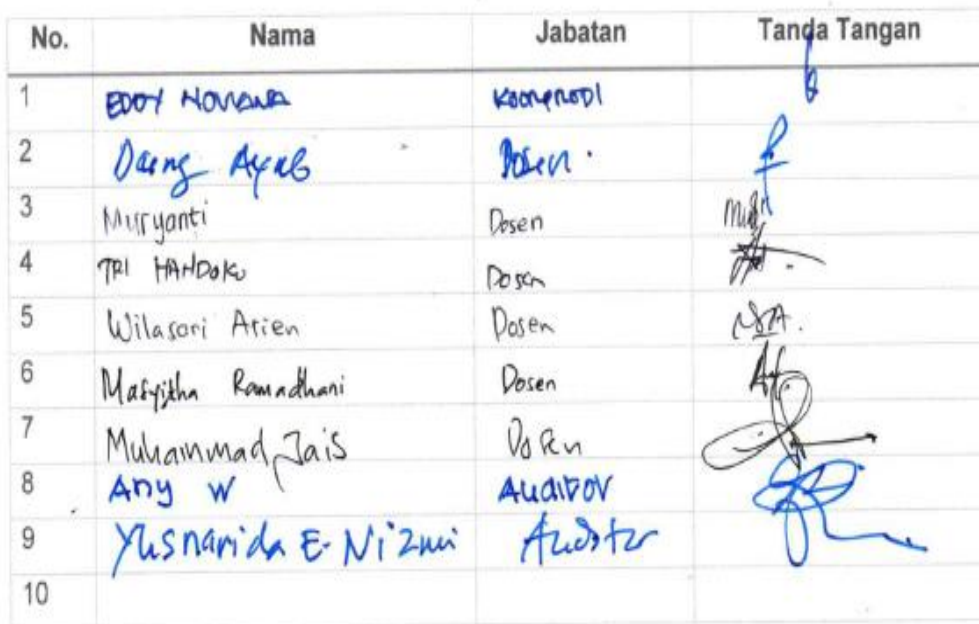 No. Nama Jabatan Tanda Tangan
1 EDDY NOVIANA KOORPRODI
2 Daeng Ayub Dosen
3 Muryanti Dosen
4 TRI HANDOKO Dosen
5 Wilasari Arien Dosen
6 Masyitha Ramadhani Dosen
7 Muhammad Jais Dosen
8 Any W Auditor
9 Yusnarida E. Nizmi Auditor
10